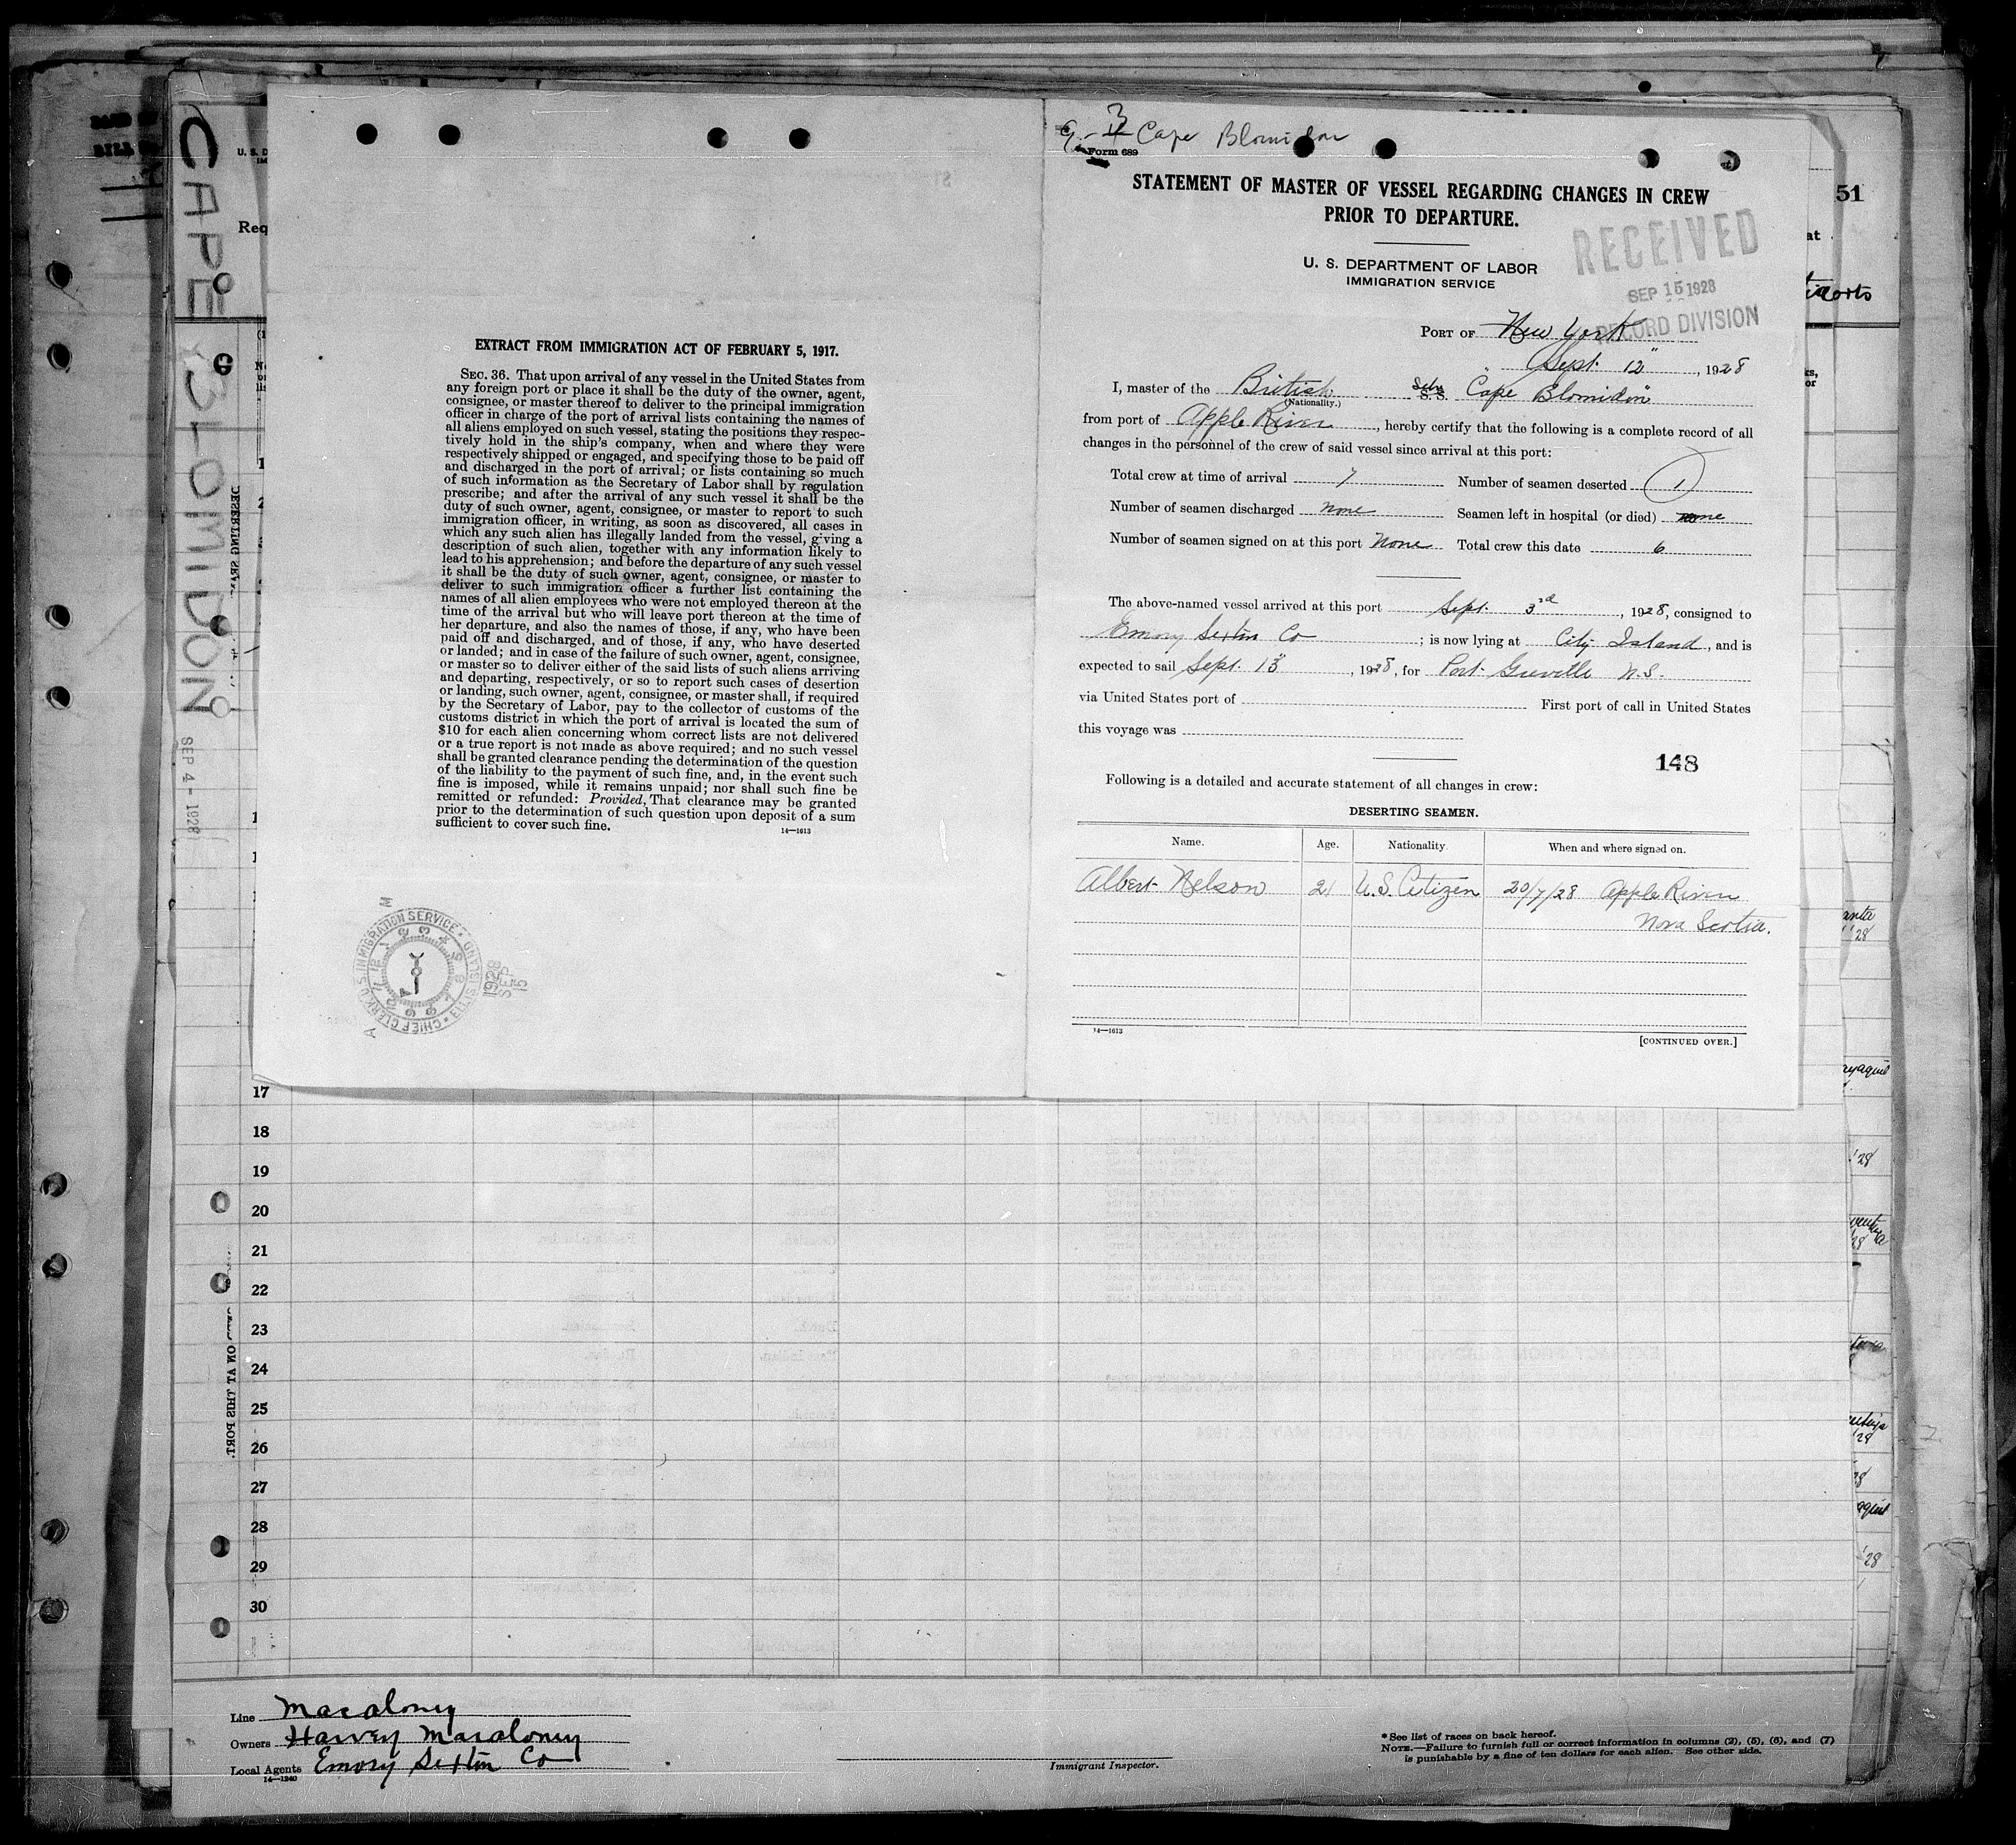 CAPE BLOMIDON
SEP 4 - 1928
EXTRACT FROM IMMIGRATION ACT OF FEBRUARY 5, 1917.
SEC. 36. That upon arrival of any vessel in the United States from
any foreign port or place it shall be the duty of the owner, agent,
consignee, or master thereof to deliver to the principal immigration
officer in charge of the port of arrival lists containing the names of
all aliens employed on such vessel, stating the positions they respec-
tively hold in the ship's company, when and where they were
respectively shipped or engaged, and specifying those to be paid off
and discharged in the port of arrival; or lists containing so much
of such information as the Secretary of Labor shall by regulation
prescribe; and after the arrival of any such vessel it shall be the
duty of such owner, agent, consignee, or master to report to such
immigration officer, in writing, as soon as discovered, all cases in
which any such alien has illegally landed from the vessel, giving a
description of such alien, together with any information likely to
lead to his apprehension; and before the departure of any such vessel
it shall be the duty of such owner, agent, consignee, or master to
deliver to such immigration officer a further list containing the
names of all alien employees who were not employed thereon at the
time of the arrival but who will leave port thereon at the time of
her departure, and also the names of those, if any, who have been
paid off and discharged, and of those, if any, who have deserted
or landed; and in case of the failure of such owner, agent, consignee,
or master so to deliver either of the said lists of such aliens arriving
and departing, respectively, or so to report such cases of desertion
or landing, such owner, agent, consignee, or master shall, if required
by the Secretary of Labor, pay to the collector of customs of the
customs district in which the port of arrival is located the sum of
$10 for each alien concerning whom correct lists are not delivered
or a true report is not made as above required; and no such vessel
shall be granted clearance pending the determination of the question
of the liability to the payment of such fine, and, in the event such
fine is imposed, while it remains unpaid; nor shall such fine be
remitted or refunded: Provided, That clearance may be granted
prior to the determination of such question upon deposit of a sum
sufficient to cover such fine.
14—1613
CHIEF CLERK U.S. IMMIGRATION SERVICE • ELLIS ISLAND
1928 SEP 15
3 Cape Blomidon
Form 689
STATEMENT OF MASTER OF VESSEL REGARDING CHANGES IN CREW
PRIOR TO DEPARTURE.
RECEIVED
SEP 15 1928
RECORD DIVISION
U. S. DEPARTMENT OF LABOR
IMMIGRATION SERVICE
PORT OF New York
Sept. 12", 1928
I, master of the British Schr S.S. "Cape Blomidon"
(Nationality.)
from port of Apple River, hereby certify that the following is a complete record of all
changes in the personnel of the crew of said vessel since arrival at this port:
Total crew at time of arrival 7 Number of seamen deserted 1
Number of seamen discharged None Seamen left in hospital (or died) none
Number of seamen signed on at this port None Total crew this date 6
The above-named vessel arrived at this port Sept. 3rd, 1928, consigned to
Emory Sexton Co; is now lying at City Island, and is
expected to sail Sept. 13", 1928, for Port Greville N.S.
via United States port of First port of call in United States
this voyage was
148
Following is a detailed and accurate statement of all changes in crew:
DESERTING SEAMEN.
Name. Age. Nationality. When and where signed on.
Albert Nelson 21 U.S. Citizen 20/7/28 Apple River
Nova Scotia.
14—1613
[CONTINUED OVER.]
51
17
18
19
20
21
22
23
24
25
26
27
28
29
30
Line Macaloney
Owners Harvey Macaloney
Local Agents Emory Sexton Co
14—1240
Immigrant Inspector.
* See list of races on back hereof.
NOTE.—Failure to furnish full or correct information in columns (2), (5), (6), and (7)
is punishable by a fine of ten dollars for each alien. See other side.